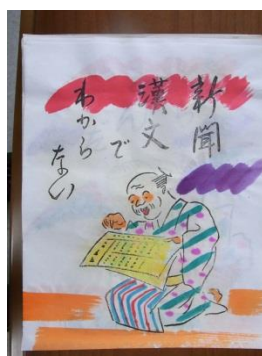 新聞
漢文
で
わから
ない